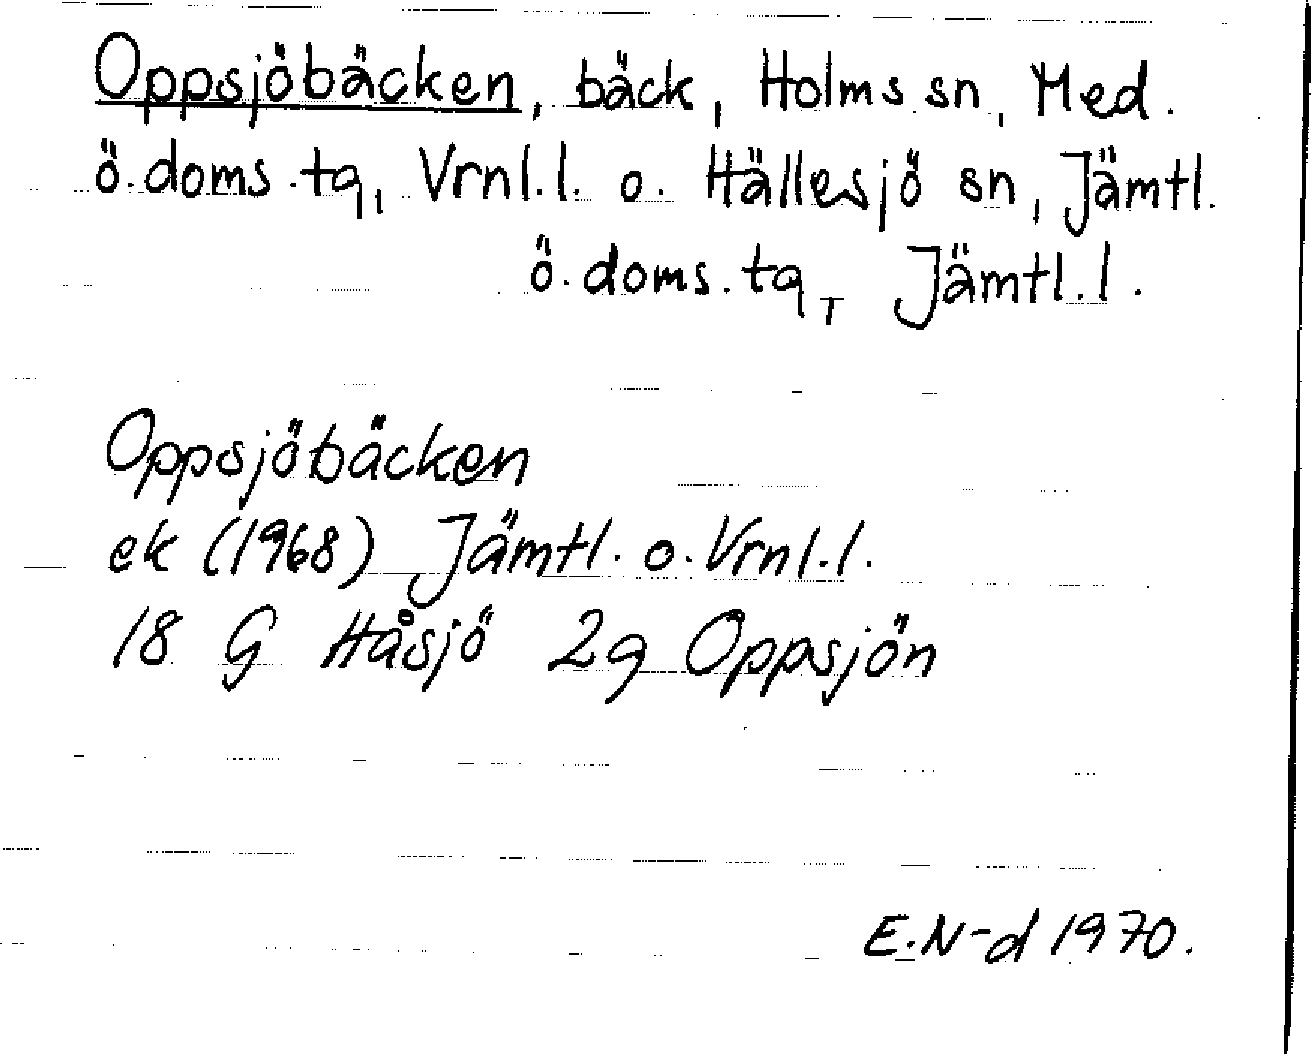 Oppsjöbäcken, bäck, Holms sn, Med.
ö.doms.tg, Vrnl.l. o. Hällesjö sn, Jämtl.
ö.doms.tg, Jämtl.l.
Oppsjöbäcken
ek (1968) Jämtl. o. Vrnl.l.
18 G Håsjö 2g Oppsjön
E.N-d 1970.